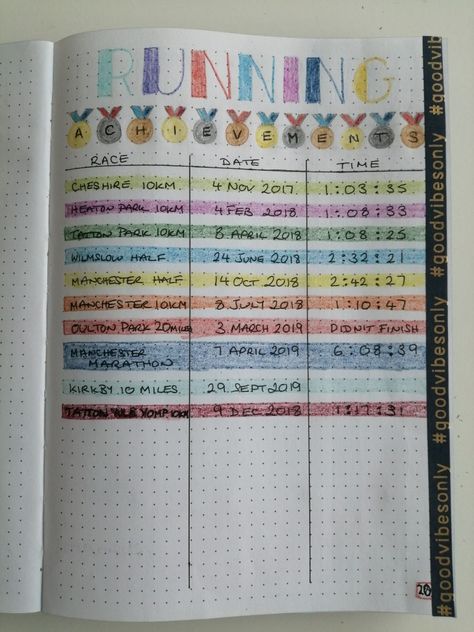 RUNNING
ACHIEVEMENTS
RACE DATE TIME
CHESHIRE 10KM 4 NOV 2017 1:03:35
HEATON PARK 10KM 4 FEB 2018 1:08:33
TATTON PARK 10KM 8 APRIL 2018 1:08:25
WILMSLOW HALF 24 JUNE 2018 2:32:21
MANCHESTER HALF 14 OCT 2018 2:42:27
MANCHESTER 10KM 8 JULY 2018 1:10:47
OULTON PARK 20MILES 3 MARCH 2019 DIDNIT FINISH
MANCHESTER MARATHON 7 APRIL 2019 6:08:39
KIRKBY 10 MILES 29 SEPT 2019
TATTON YOMP 10KM 9 DEC 2018 1:17:31
#goodvibesonly #goodvibesonly #goodvibesonly #goodvibesonly